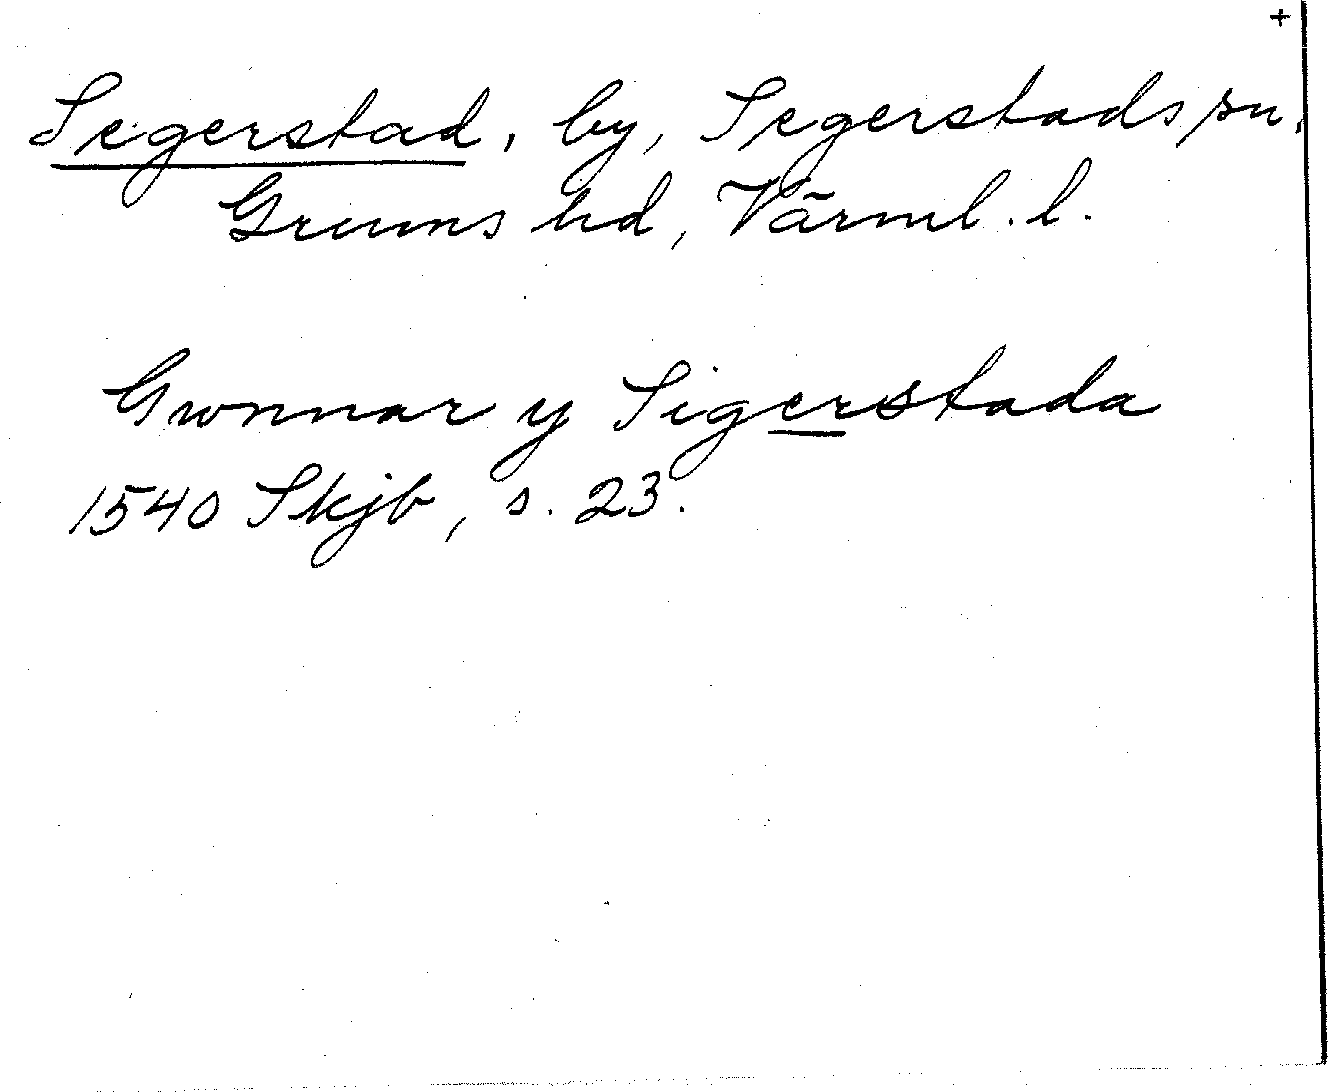 +
Segerstad, by, Segerstads sn,
Grums hd, Värml. l.
Gwnnar y Sigerstada
1540 Skjb, s. 23.